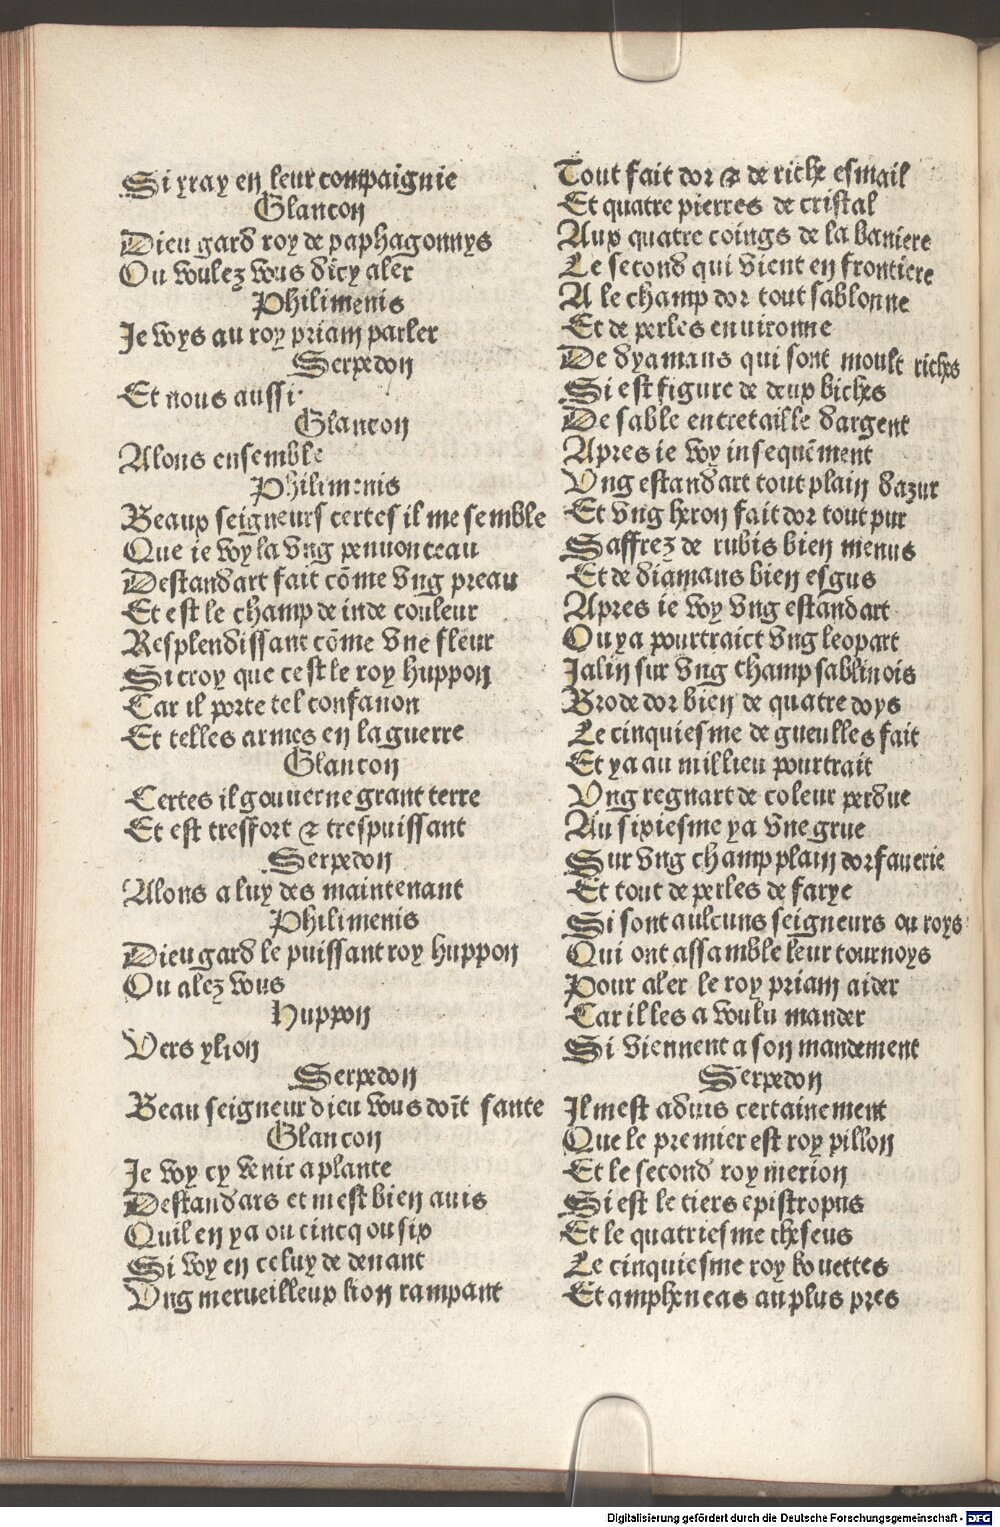 Si yray en leur compaignie
Glaucon
Dieu gard roy de paphagonnys
Ou voulez vous dicy aler
Philimenis
Je voys au roy priam parler
Serpedon
Et nous aussi
Glaucon
Alons ensemble
Philimenis
Beaux seigneurs certes il me semble
Que ie voy la vng pennonceau
Destandart fait cõme vng preau
Et est le champ de inde couleur
Resplendissant cõme vne fleur
Si croy que cest le roy huppon
Car il porte tel confanon
Et telles armes en la guerre
Glaucon
Certes il gouuerne grant terre
Et est tresfort & trespuissant
Serpedon
Alons a luy des maintenant
Philimenis
Dieu gard le puissant roy huppon
Ou alez vous
Huppon
Vers ylion
Serpedon
Beau seigneur dieu vous doĩt sante
Glaucon
Je voy cy venir a plante
Destandars et mest bien auis
Quil en ya ou cincq ou six
Si voy en celuy de deuant
Vng merueilleux lion rampant
Tout fait dor & de riche esmail
Et quatre pierres de cristal
Aux quatre coings de la baniere
Le second qui vient en frontiere
A le champ dor tout sablonne
Et de perles enuironne
De dyamans qui sont moult riches
Si est figure de deux biches
De sable entretaille dargent
Apres ie voy insequẽment
Vng estandart tout plain dazur
Et vng heron fait dor tout pur
Saffrez de rubis bien menus
Et de diamans bien esgus
Apres ie voy vng estandart
Ou ya pourtraict vng leopart
Jalin sur vng champ sablinois
Brode dor bien de quatre doys
Le cinquiesme de gueulles fait
Et ya au millieu pourtrait
Vng regnart de coleur perdue
Au sixiesme ya vne grue
Sur vng champ plain dorfauerie
Et tout de perles de farye
Si sont aulcuns seigneurs ou roys
Qui ont assamble leur tournoys
Pour aler le roy priam aider
Car il les a voulu mander
Si viennent a son mandement
Serpedon
Il mest aduis certainement
Que le premier est roy pillon
Et le second roy merion
Si est le tiers epistropus
Et le quatriesme theseus
Le cinquiesme roy bouettes
Et ampheneas au plus pres
Digitalisierung gefördert durch die Deutsche Forschungsgemeinschaft - DFG